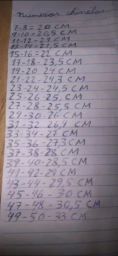 Numeros chinelos
7-8=20 CM
9-10=20,5 CM
11-12=21 CM
13-14=21,5 CM
15-16=22 CM
17-18-23,5 CM
19-20 24 CM
21-22-24,3 CM
23-24-24,5 CM
25-26 25, CM
27-28-25,5 CM
29-30=26 CM
31-32 26,7 CM
33-34-27 CM
35-36-27,3 CM
37-38-28 CM
39-40=28,5 CM
41-42=29 CM
43-44-29,5 CM
45-46-30 CM
47-48-30,5 CM
49-50-33 CM